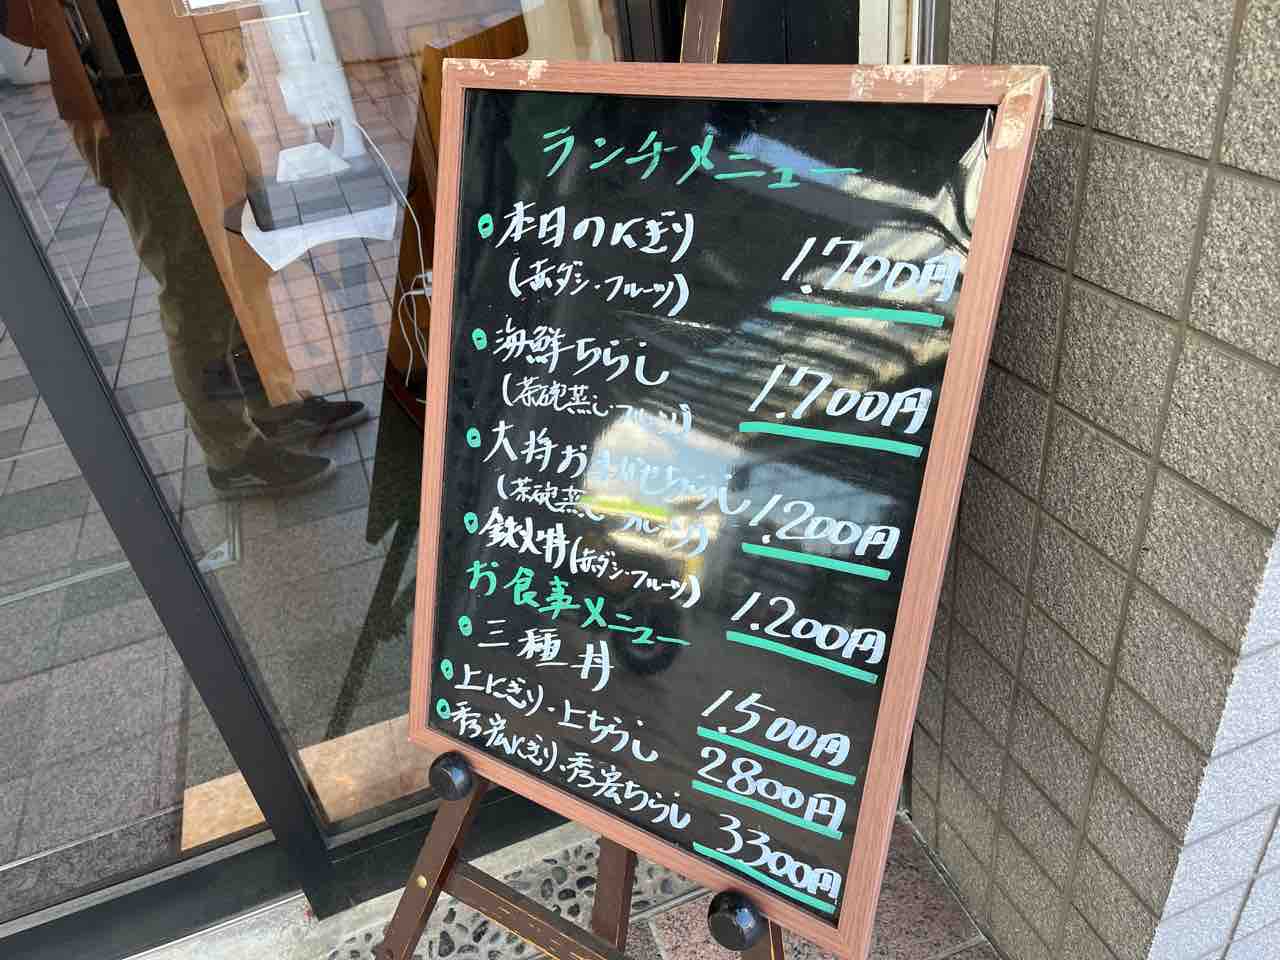 ランチメニュー
本日のにぎり 1.700円
(赤ダシ・フルーツ)
海鮮ちらし 1.700円
(茶碗蒸し・フルーツ)
大将おまかせちらし 1.200円
(茶碗蒸し フルーツ)
鉄火丼(赤ダシ・フルーツ) 1.200円
お食事メニュー
三種丼 1.500円
上にぎり・上ちらし 2800円
秀宏にぎり・秀宏ちらし 3300円